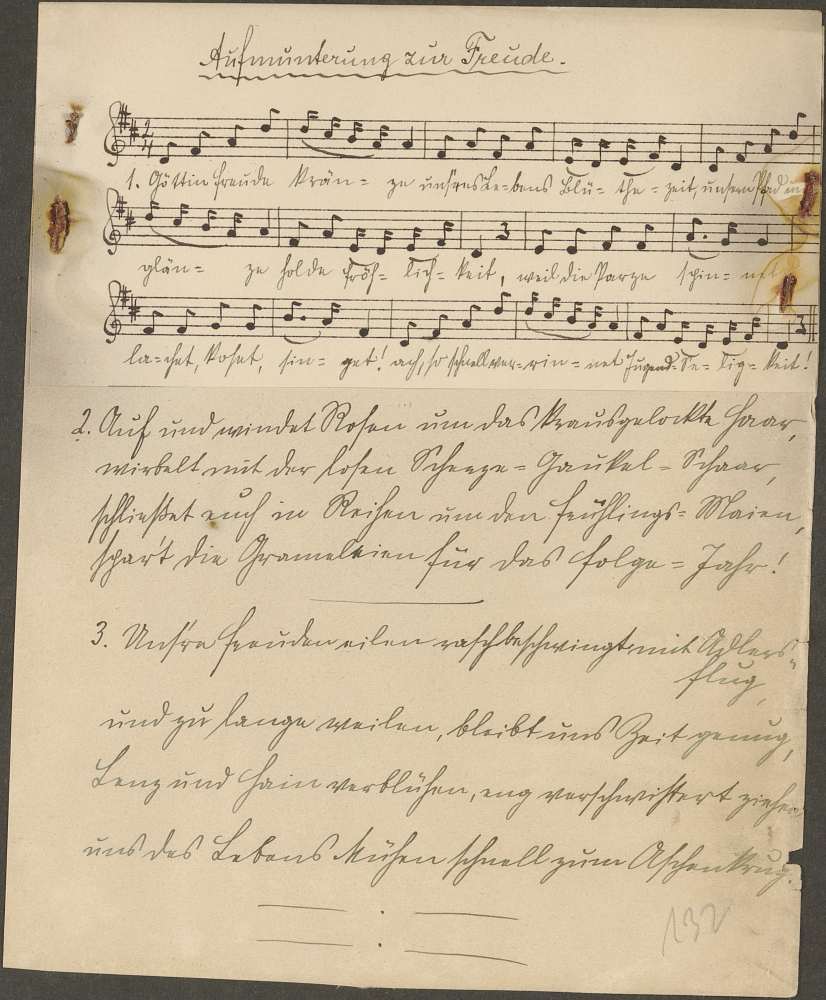 Aufmunterung zur Freude.
1. Göttin Freude krän= ze uns'res Le=bens Blü= the = zeit, unsern Pfad um
glän= ze holde Fröh= lich= keit, weil die Parze spin= net
la=chet, koset, sin= get! ach, so schnell ver=rin= net Jugend=Se= lig= keit!
2. Auf und windet Rosen um das krausgelockte Haar,
wirbelt mit der losen Scherze=Gaukel=Schaar,
schließet euch in Reihen um den Frühlings=Maien,
spar't die Grameleien für das Folge=Jahr!
3. Uns're Freuden eilen rasch beschwingt mit Adlers=
flug,
und zu lange weilen, bleibt uns Zeit genug,
Lenz und Hain verblühen, eng verschwistert ziehen
uns des Lebens Mühen schnell zum Aschenkrug.
132